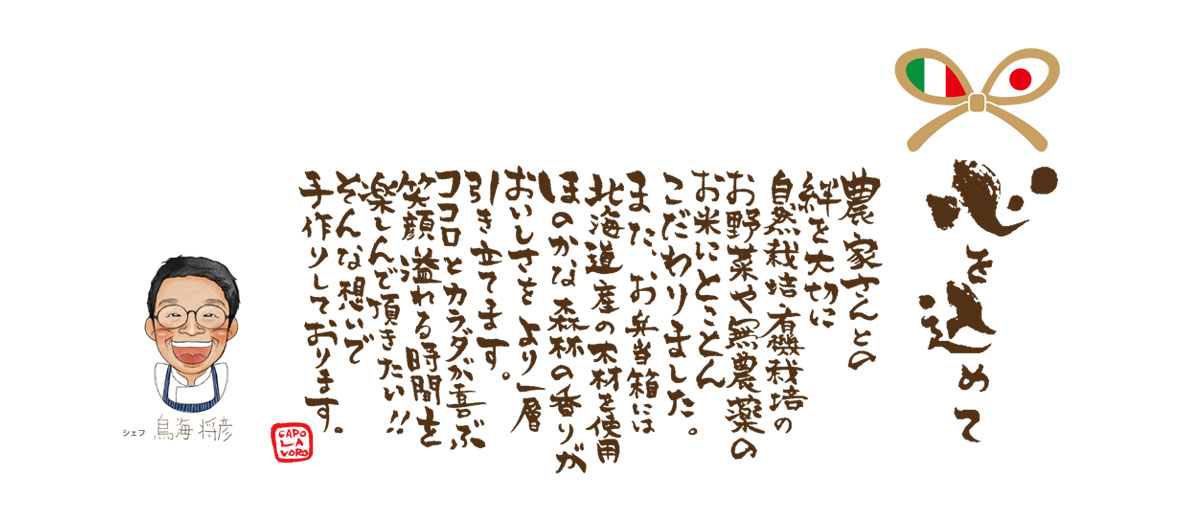 心を込めて
農家さんとの
絆を大切に
自然栽培・有機栽培の
お野菜や無農薬の
お米にとことん
こだわりました。
また、お弁当箱には
北海道産の木材を使用
ほのかな森林の香りが
おいしさをより一層
引き立てます。
ココロとカラダが喜ぶ
笑顔溢れる時間を
楽しんで頂きたい!!
そんな想いで
手作りしております。
CAPO
LA
VORO
シェフ 鳥海 将彦